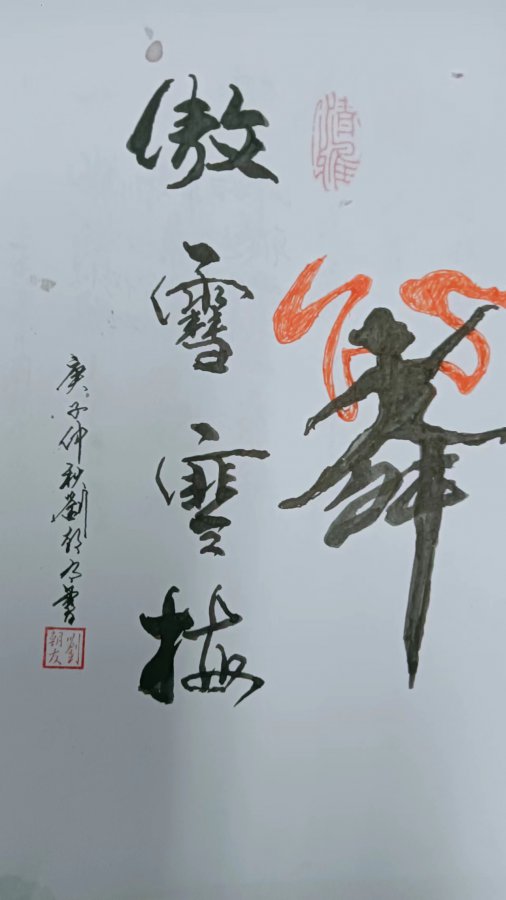 清雅
傲雪寒梅
庚子仲秋劉朝友書
劉朝友